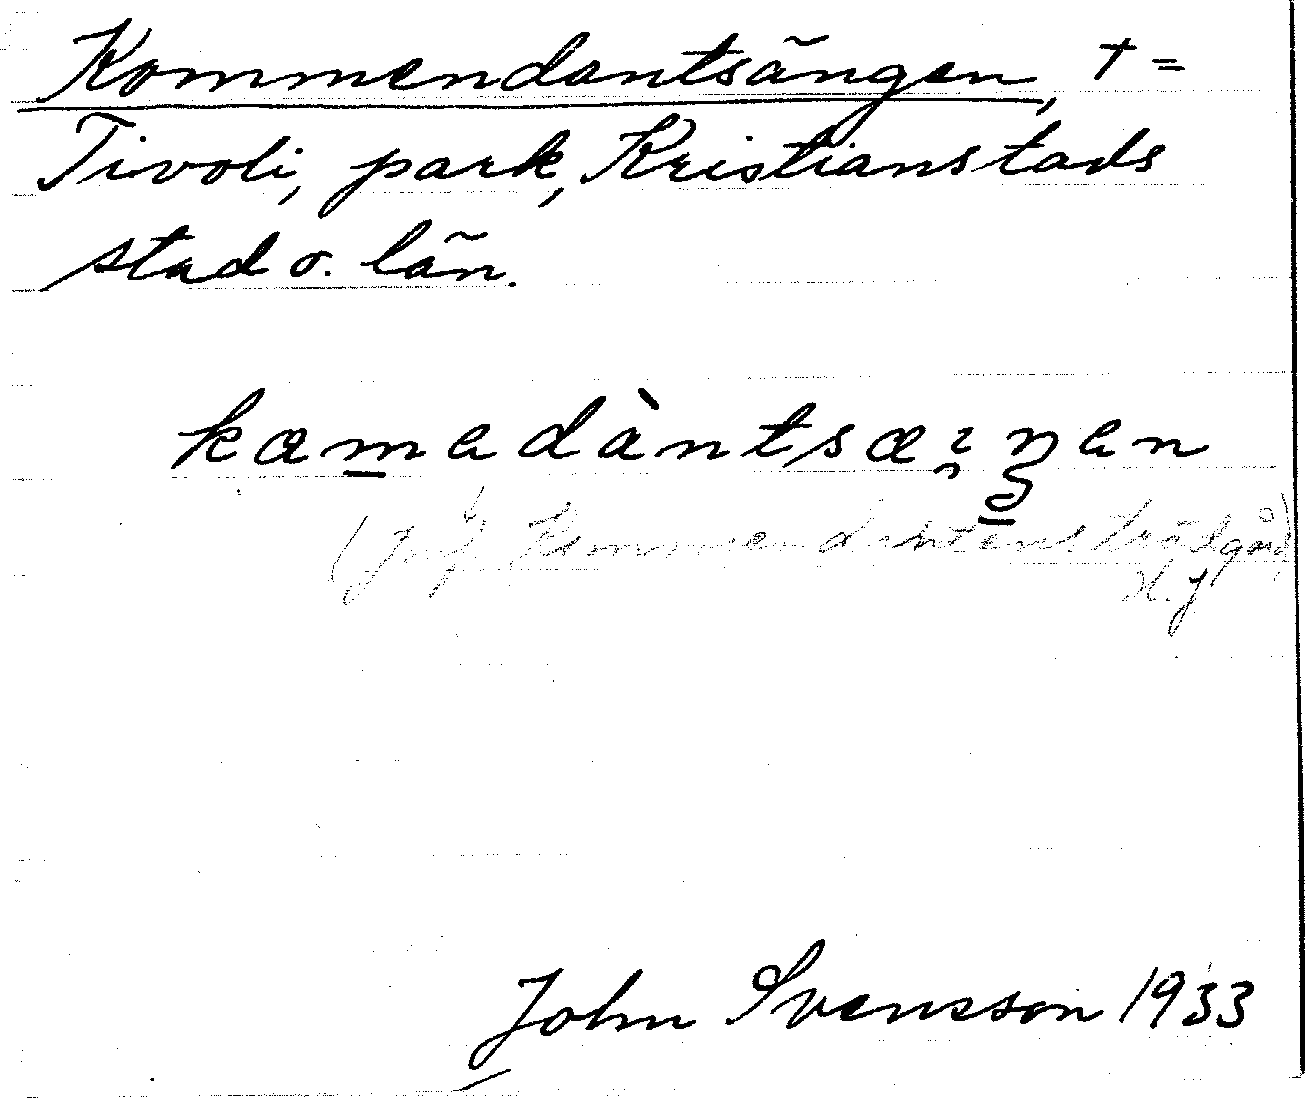 Kommendantsängen, † =
Tivoli, park, Kristianstads
stad o. län.
kæmedàntsæꝛŋen
(jmf. Kommendantens trädgård)
H. J.
John Svensson 1933